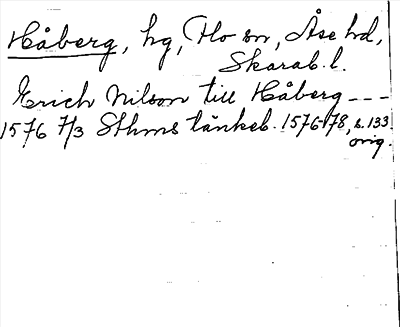 Håberg, hg, Flo sn, Åse hd,
Skarab. l.
Erich Nilson till Håberg ---
1576 7/3 Sthms tänkeb. 1576-78, s. 133
orig.